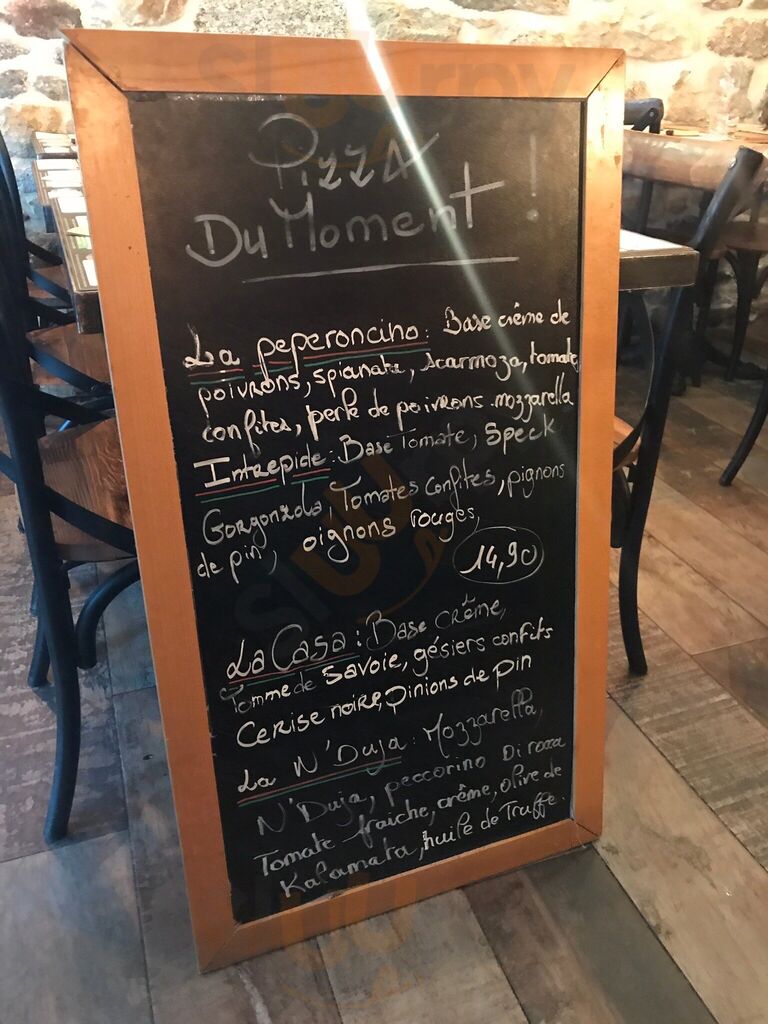 Pizza
Du Moment !
La peperoncino : Base crême de
poivrons, spianata, scarmoza, tomate
confites, perle de poivrons. mozzarella
Intrepide : Base Tomate, Speck
Gorgonzola, Tomates confites, pignons
de pin, oignons rouges,
14,90
La Casa : Base crême,
Tomme de Savoie, gésiers confits
Cerise noire, pinions de pin
La N'Duja : Mozzarella,
N'Duja, peccorino Di rocca
Tomate fraiche, crême, olive de
Kalamata, huile de Truffe.